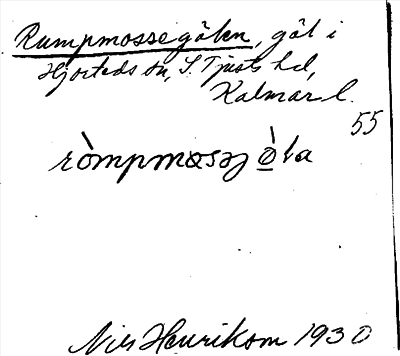 Rumpmossegölen, göl i
Hjorteds sn, S. Tjusts hd,
Kalmar l.
55
ròmpmosəj ò̲la
Nils Henrikson 1930